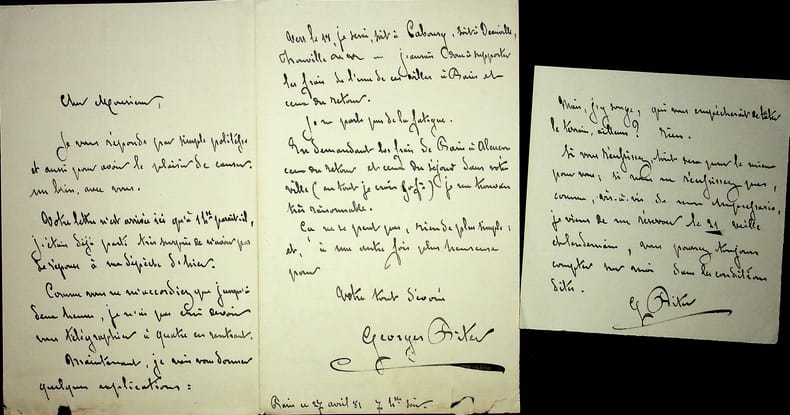 Cher Monsieur,
Je vous réponds par simple politesse
et aussi pour avoir le plaisir de causer
un brin, avec vous.
Votre lettre n'est arrivée ici qu'à 1 h. paraît-il,
j'étais déjà parti très surpris de n'avoir pas
de réponse à ma dépêche d'hier.
Comme vous ne m'accordiez que jusqu'à
deux heures, je n'ai pas cru devoir
vous télégraphier à quatre en rentrant.
Maintenant, je vais vous donner
quelques explications :
Vers le 14, je serai, soit à Cabourg, soit à Deauville,
Trouville ou j'aurais donc à supporter
les frais de l'une de ces villes à Paris et
ceux du retour.
Je ne parle pas de la fatigue.
En demandant les frais de Paris à Alençon
ceux du retour et ceux du séjour dans votre
ville (en tout je crois ) je me trouvais
très raisonnable.
Ça ne se peut pas, rien de plus simple :
et, à une autre fois plus heureuse
pour
Votre tout dévoué
Georges
Paris ce 27 avril 81 7 h. soir.
Mais, j'y songe, qui vous empêcherait de tâter
le terrain, ailleurs ? Rien.
Si vous réussissez, tout sera pour le mieux
pour vous ; si vous ne réussissez pas,
comme, vis-à-vis de mon impresario,
je viens de me réserver le 21
vous pourrez toujours
compter sur moi dans les conditions
dites.
G.